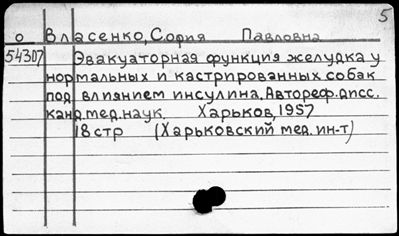 5
о Власенко, София Павловна
54307 Эвакуаторная функция желудка у
нормальных и кастрированных собак
под влиянием инсулина. Автореф. дисс.
канд. мед. наук. Харьков, 1957
18 стр (Харьковский мед. ин-т)